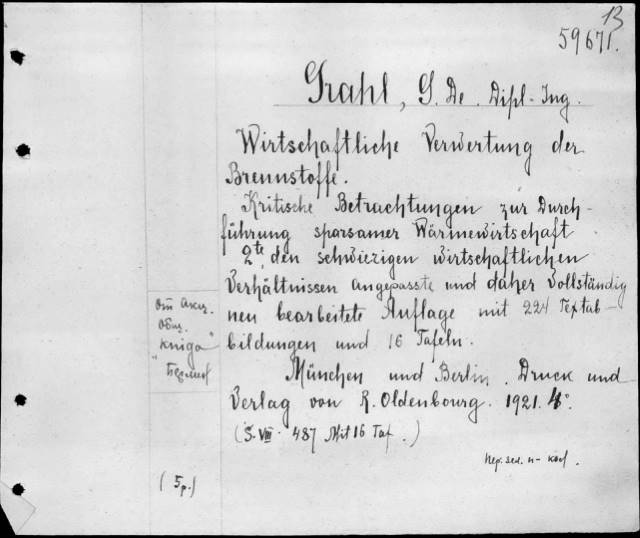 13
59671.
Grahl, G. De. Dipl-Ing.
Wirtschaftliche Verwertung der
Brennstoffe.
Kritische Betrachtungen zur Durch-
führung sparsamer Wärmewirtschaft
2te, den schwiezigen wirtschaftlichen
Verhältnissen angepasste und daher vollständig
neu bearbeitete Auflage mit 224 Textab-
bildungen und 16 Tafeln.
München und Berlin. Druck und
Verlag von R. Oldenbourg. 1921. 4°.
(S. VIII. 487 Mit 16 Taf.)
от Акц.
Общ.
"Книга"
Берлин
(5р.)